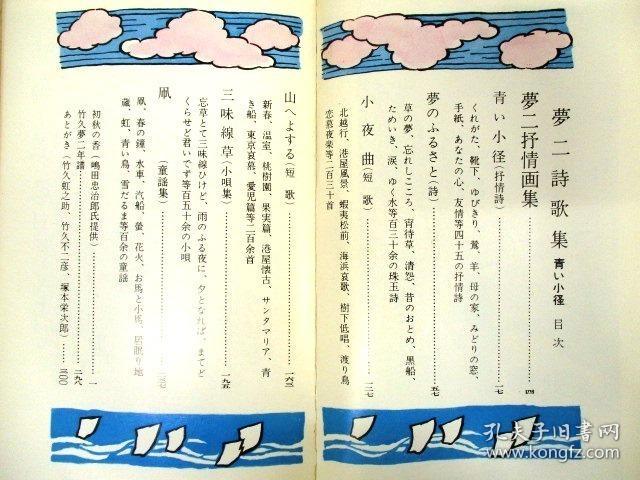 夢二詩歌集 青い小径 目次
夢二抒情画集……四
青い小径（抒情詩）……一七
くれがた、靴下、ゆびきり、鶯、羊、母の家、みどりの窓、
手紙、あなたの心、友情等四十五の抒情詩
夢のふるさと（詩）……五七
草の夢、忘れしこころ、宵待草、清怨、昔のおとめ、黒船、
ためいき、涙、ゆく水等百三十余の珠玉詩
小夜曲（短歌）……一二七
北越行、港屋風景、蝦夷松前、海浜哀歌、樹下低唱、渡り鳥
恋慕夜栄等二百三十首
山へよする（短歌）……一六三
新春、温室、桃樹園、果実篇、港屋懐古、サンタマリア、青
き船、東京哀慕、愛児篇等二百余首
三味線草（小唄集）……一九五
忘草とて三味線ひけど、雨のふる夜に、夕となれば、まてど
くらせど君いでず等百五十余の小唄
凧（童謡集）……二三七
凧、春の鐘、水車、汽船、螢、花火、お馬と小馬、居眠り地
蔵、虹、青い鳥、雪だるま等百余の童謡
初秋の香（嶋田忠治郎氏提供）……一
竹久夢二年譜……二九九
あとがき（竹久虹之助、竹久不二彦、塚本栄次郎）……三〇〇
孔夫子旧书网
www.kongfz.com